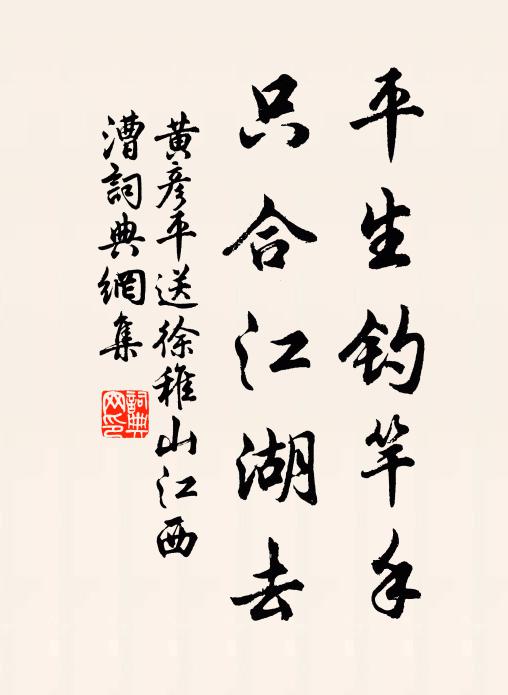 平生釣竿手
只合江湖去
黄彦平送徐稚山江西
漕詞典網集
詞典
网印